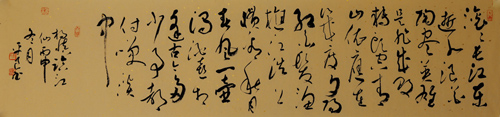 滚滚长江東
逝水浪花
淘尽英雄
是非成敗
转头空青
山依舊在
几度夕陽
红白髮渔
樵江渚上
惯看秋月
春风一壶
浊酒喜相
逢古今多
少事都
付笑谈
中
楊慎临江
仙丙申
冬月